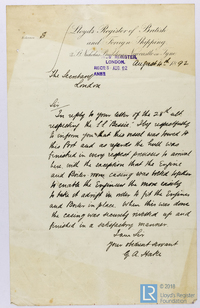 Lloyd's Register of British
and Foreign Shipping
August 4th 1892
LONDON.
The Secretary
London
Sir
In reply to your letter of the 28th ult
respecting the SS "Bessie" I beg respectfully
to inform you that this vessel was towed to
this Port and as regards the Hull was
finished in every respect previous to arrival
here with the exception that the Engine
and Boiler room casing was bolted together
to enable the Engineers the more easily
to take it adrift in order to fit the Engines
and Boilers in place. When this was done
the casing was securely riveted up and
finished in a satisfactory manner.
I am Sir
Your obedient servant
© 2018
Lloyd's Register
Foundation